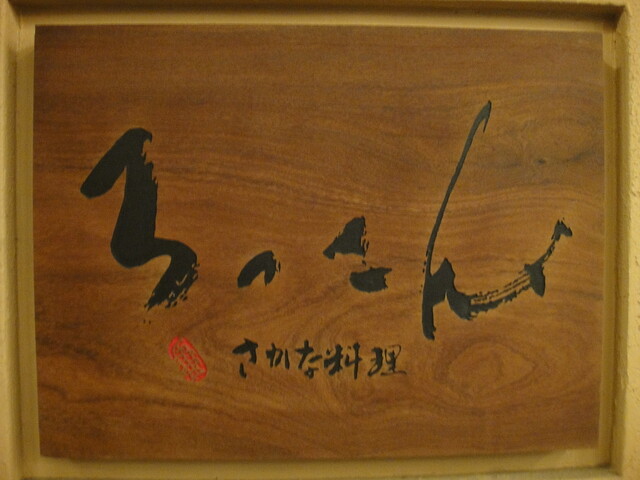 ろっさん
さかな料理